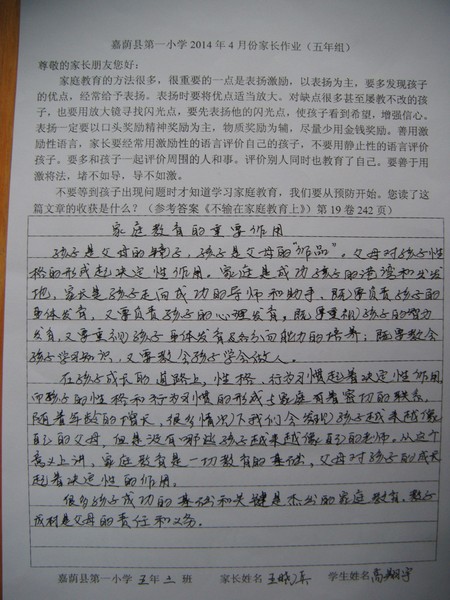 嘉荫县第一小学 2014 年 4 月份家长作业（五年组）
尊敬的家长朋友您好：
家庭教育的方法很多，很重要的一点是表扬激励，以表扬为主，要多发现孩子
的优点，经常给予表扬。表扬时要将优点适当放大。对缺点很多甚至屡教不改的孩
子，也要用放大镜寻找闪光点，要先表扬他的闪光点，使孩子看到希望，增强信心。
表扬一定要以口头奖励精神奖励为主，物质奖励为辅，尽量少用金钱奖励。善用激
励性语言，家长要经常用激励性的语言评价自己的孩子，不要用静止性的语言评价
孩子。要多和孩子一起评价周围的人和事。评价别人同时也教育了自己。要善于用
激将法，堵不如导，导不如激。
不要等到孩子出现问题时才知道学习家庭教育，我们要从预防开始。您读了这
篇文章的收获是什么？（参考答案《不输在家庭教育上》）第 19 卷 242 页）
家庭教育的重要作用
孩子是父母的镜子，孩子是父母的“作品”。父母对孩子性
格的形成起决定性作用。家庭是成功孩子的源泉和发发
地，家长是孩子走向成功的导师和助手，既要负责孩子的
身体发育，又要负责孩子的心理发育，既要重视孩子的智力
发育，又要重视孩子身体发育及各方面能力的培养；既要教会
孩子学习知识，又要教会孩子学会做人。
在孩子成长的道路上，性格、行为习惯起着决定性作用，
而孩子的性格和行为习惯的形成与家庭有着密切的联系。
随着年龄的增长，很多情况下我们会发现孩子越来越像
自己的父母，但是没有哪些孩子越来越像自己的老师，从这个
意义上讲，家庭教育是一切教育的基础，父母对孩子的成长
起着决定性的作用。
很多孩子成功的基础和关键是杰出的家庭教育，教子
成材是父母的责任和义务。
嘉荫县第一小学 五年 二 班 家长姓名 王晓 学生姓名 高翔宇